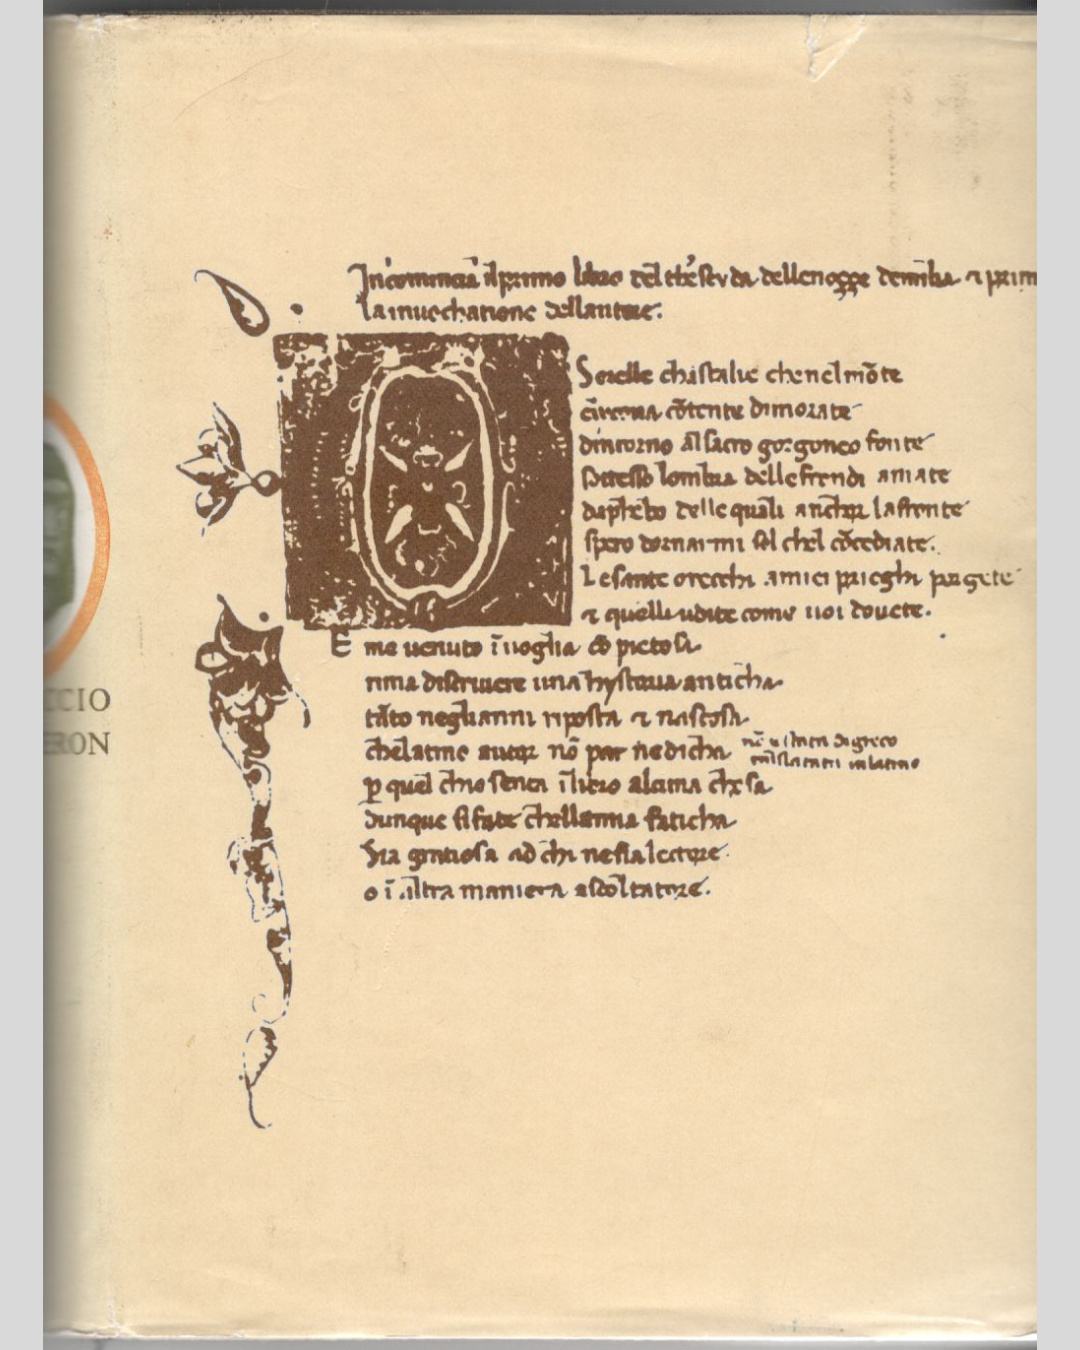 Incomincia il primo libro del theseyda delle noççe demilia & prim
la inuochatione dellautore:
O Sorelle chastalie che nel mōte
cōtente dimorate
dintorno al sacro gorgoneo fonte
sottesso lombra delle frondi amate
da phebo delle quali anchor la fronte
spero dornarmi sol chel cōcediate.
Le sante orecchi a miei prieghi porgete
& quelli udite come uoi douete.
E me uenuto ī uoglia cō pietosa
rima discriuere una hystoria anticha
tāto neglianni riposta & nascosa
che latino autor nō par ne dicha
nō è stata di greco
translatata in latino
p quel chio senta ī libro alcuna chosa
dunque si fate chella mia faticha
Sia gratiosa ad chi ne fia lectore
o ī altra maniera ascoltatore.
CCIO
ERON